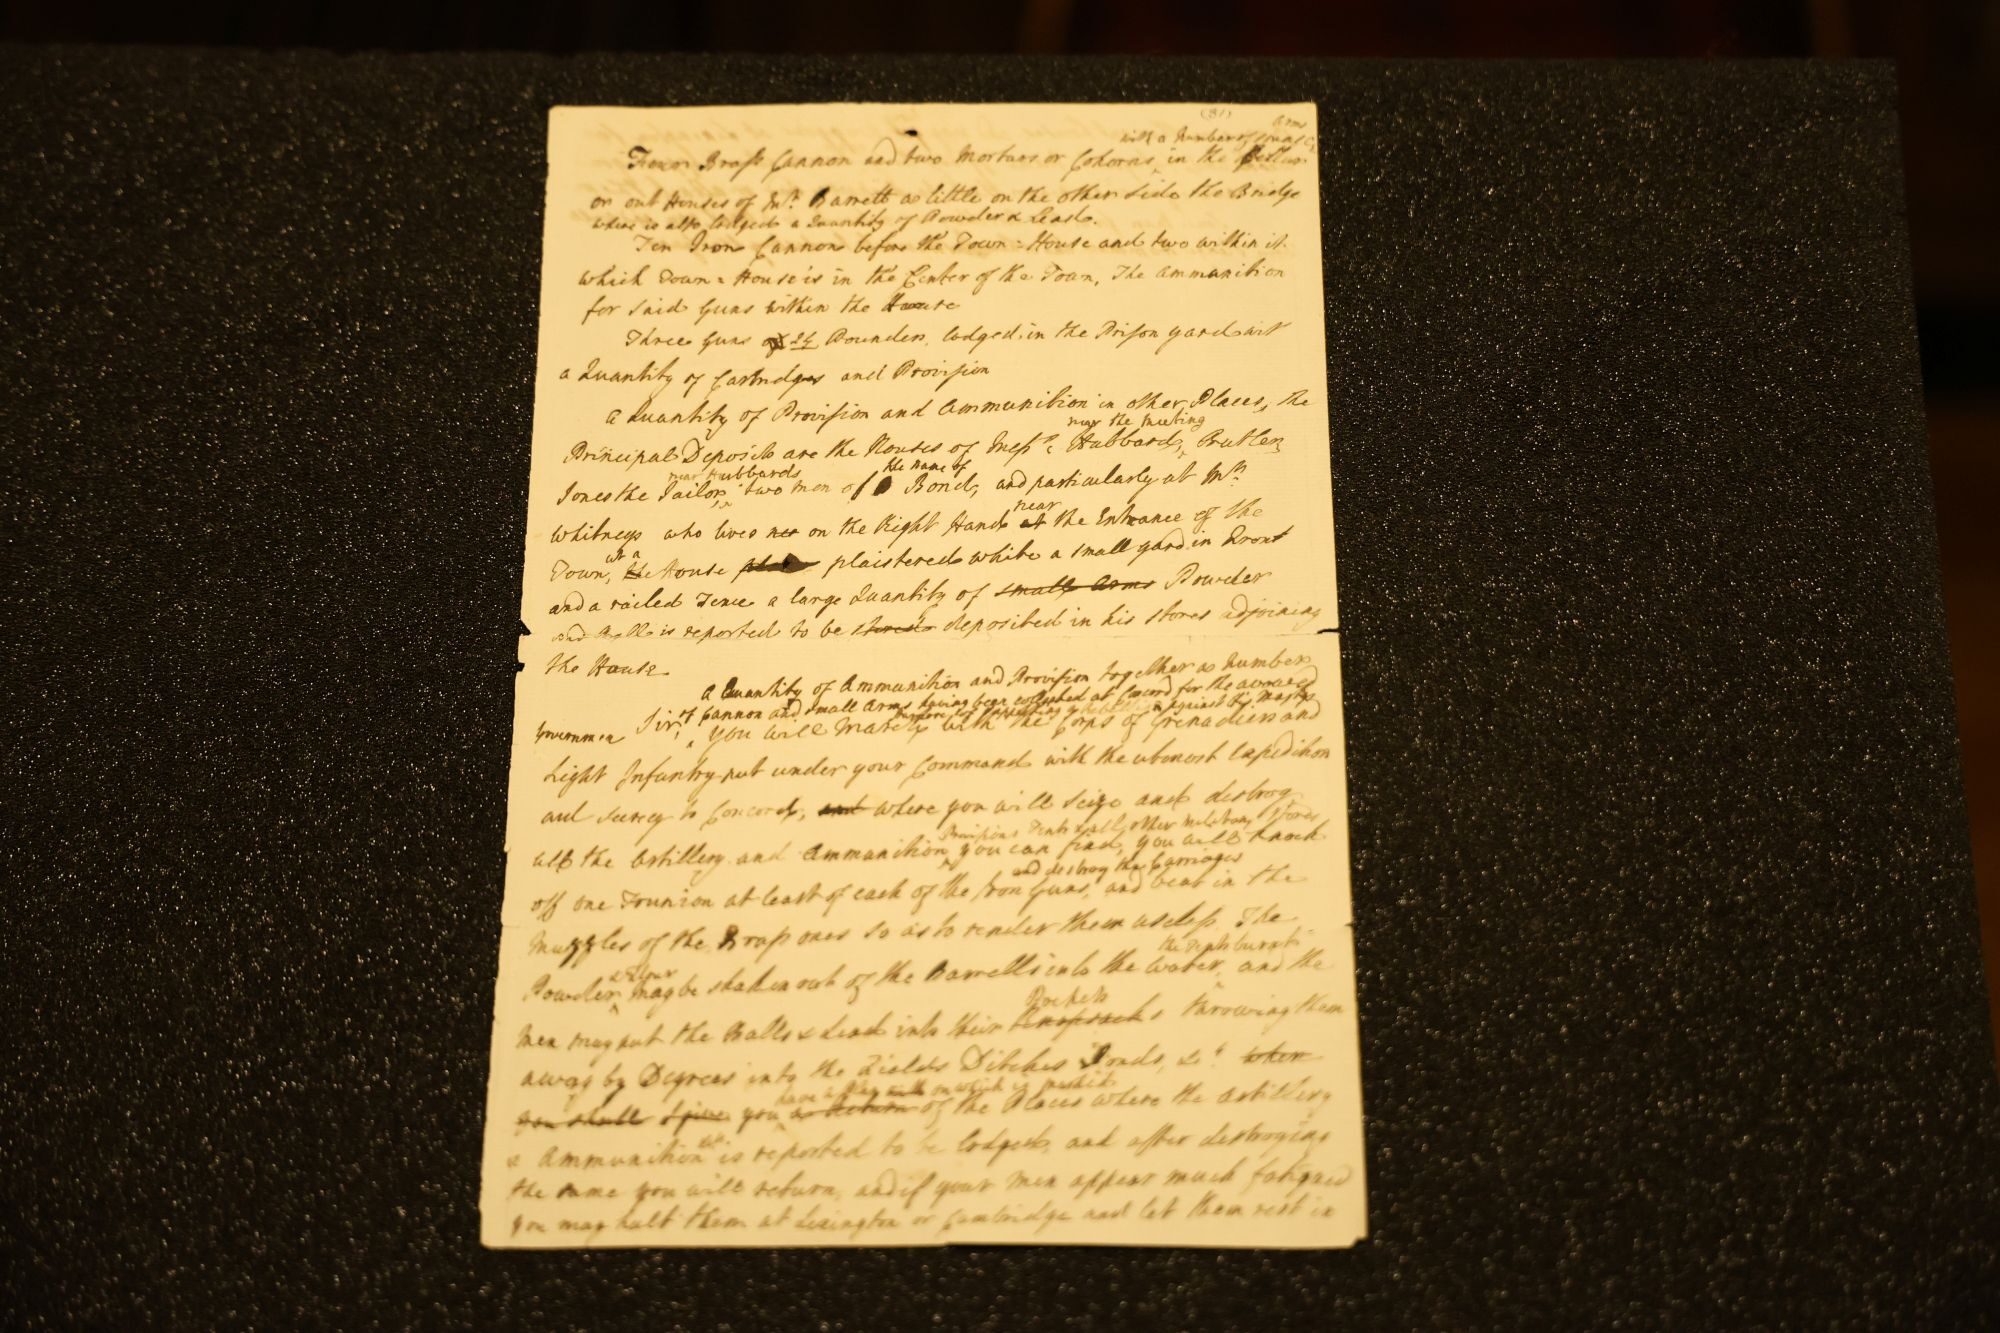 (81)
arms
with a number of small
Four Brass Cannon and two Mortars or Cohorns in the Cellar
or out Houses of Mr. Barrett a little on the other side the Bridge
where is also lodged a Quantity of Powder & Lead.
Ten Iron Cannon before the Town-House and two within it
which Town-House is in the Center of the Town, The Ammunition
for said Guns within the House
Three Guns of 24 Pounders, lodged in the Prison yard wit
a Quantity of Cartridges and Provision
a Quantity of Provision and Ammunition in other Places, the
near the meeting
Principal Deposits are the Houses of Messrs. Hubbard, Butler,
near Hubbards the name of
Jones the Tailor, two men of Bond, and particularly at Mr.
near
Whitneys who lives on the Right Hand at the Entrance of the
at a
Town, the House plaistered white a small yard in Front
and a railed Fence a large Quantity of small Arms Powder
and Ball is reported to be stored deposited in his stores adjoining
the House
A Quantity of Ammunition and Provision together a Number
of Cannon and small Arms having been collected at Concord for the avowed
against his Majestys
Governmen Sir, You will March with the Corps of Grenadiers and
Light Infantry put under your Command with the utmost Expedition
and secrecy to Concord, and where you will seize and destroy
Provisions Tents & all other military stores
all the Artillery and Ammunition you can find, you will knock
and destroy the Carriages
off one Trunion at least of each of the Iron Guns, and beat in the
Muzzles of the Brass ones so as to render them useless. The
& flour
Powder may be shaken out of the Barrells into the water, and the
Pockets
Men may put the Balls & Lead into their Knapsacks throwing them
away by Degrees into the Fields Ditches Ponds, &c. when
have a Plan on which is marked
you shall give you a Return of the Places where the Artillery
& Ammunition is reported to be lodged, and after destroying
the same you will return, and if your Men appear much fatigued
you may halt them at Lexington or Cambridge and let them rest in